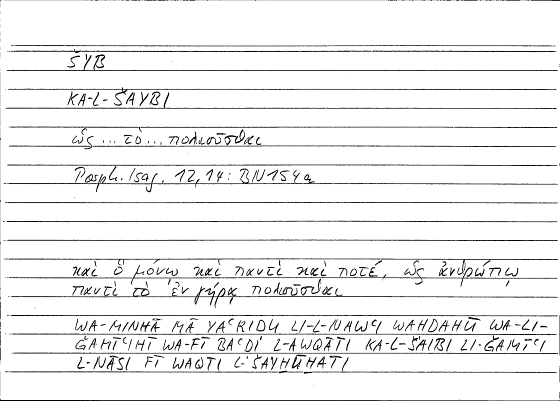 ŠYB
KA-L-ŠAYBI
ὡς ... τὸ ... πολιοῦσθαι
Porph. Isag. 12,14: BN 154a
καὶ ὃ μόνῳ καὶ παντὶ καὶ ποτέ, ὡς ἀνθρώπῳ
παντὶ τὸ ἐν γήρᾳ πολιοῦσθαι
WA-MINHĀ MĀ YAʿRIḌU LI-L-NAWʿI WAḤDAHŪ WA-LI-
ǦAMĪʿIHĪ WA-FĪ BAʿḌI L-AWQĀTI KA-L-ŠAIBI LI-ǦAMĪʿI
L-NĀSI FĪ WAQTI L-ŠAYḪŪḪATI